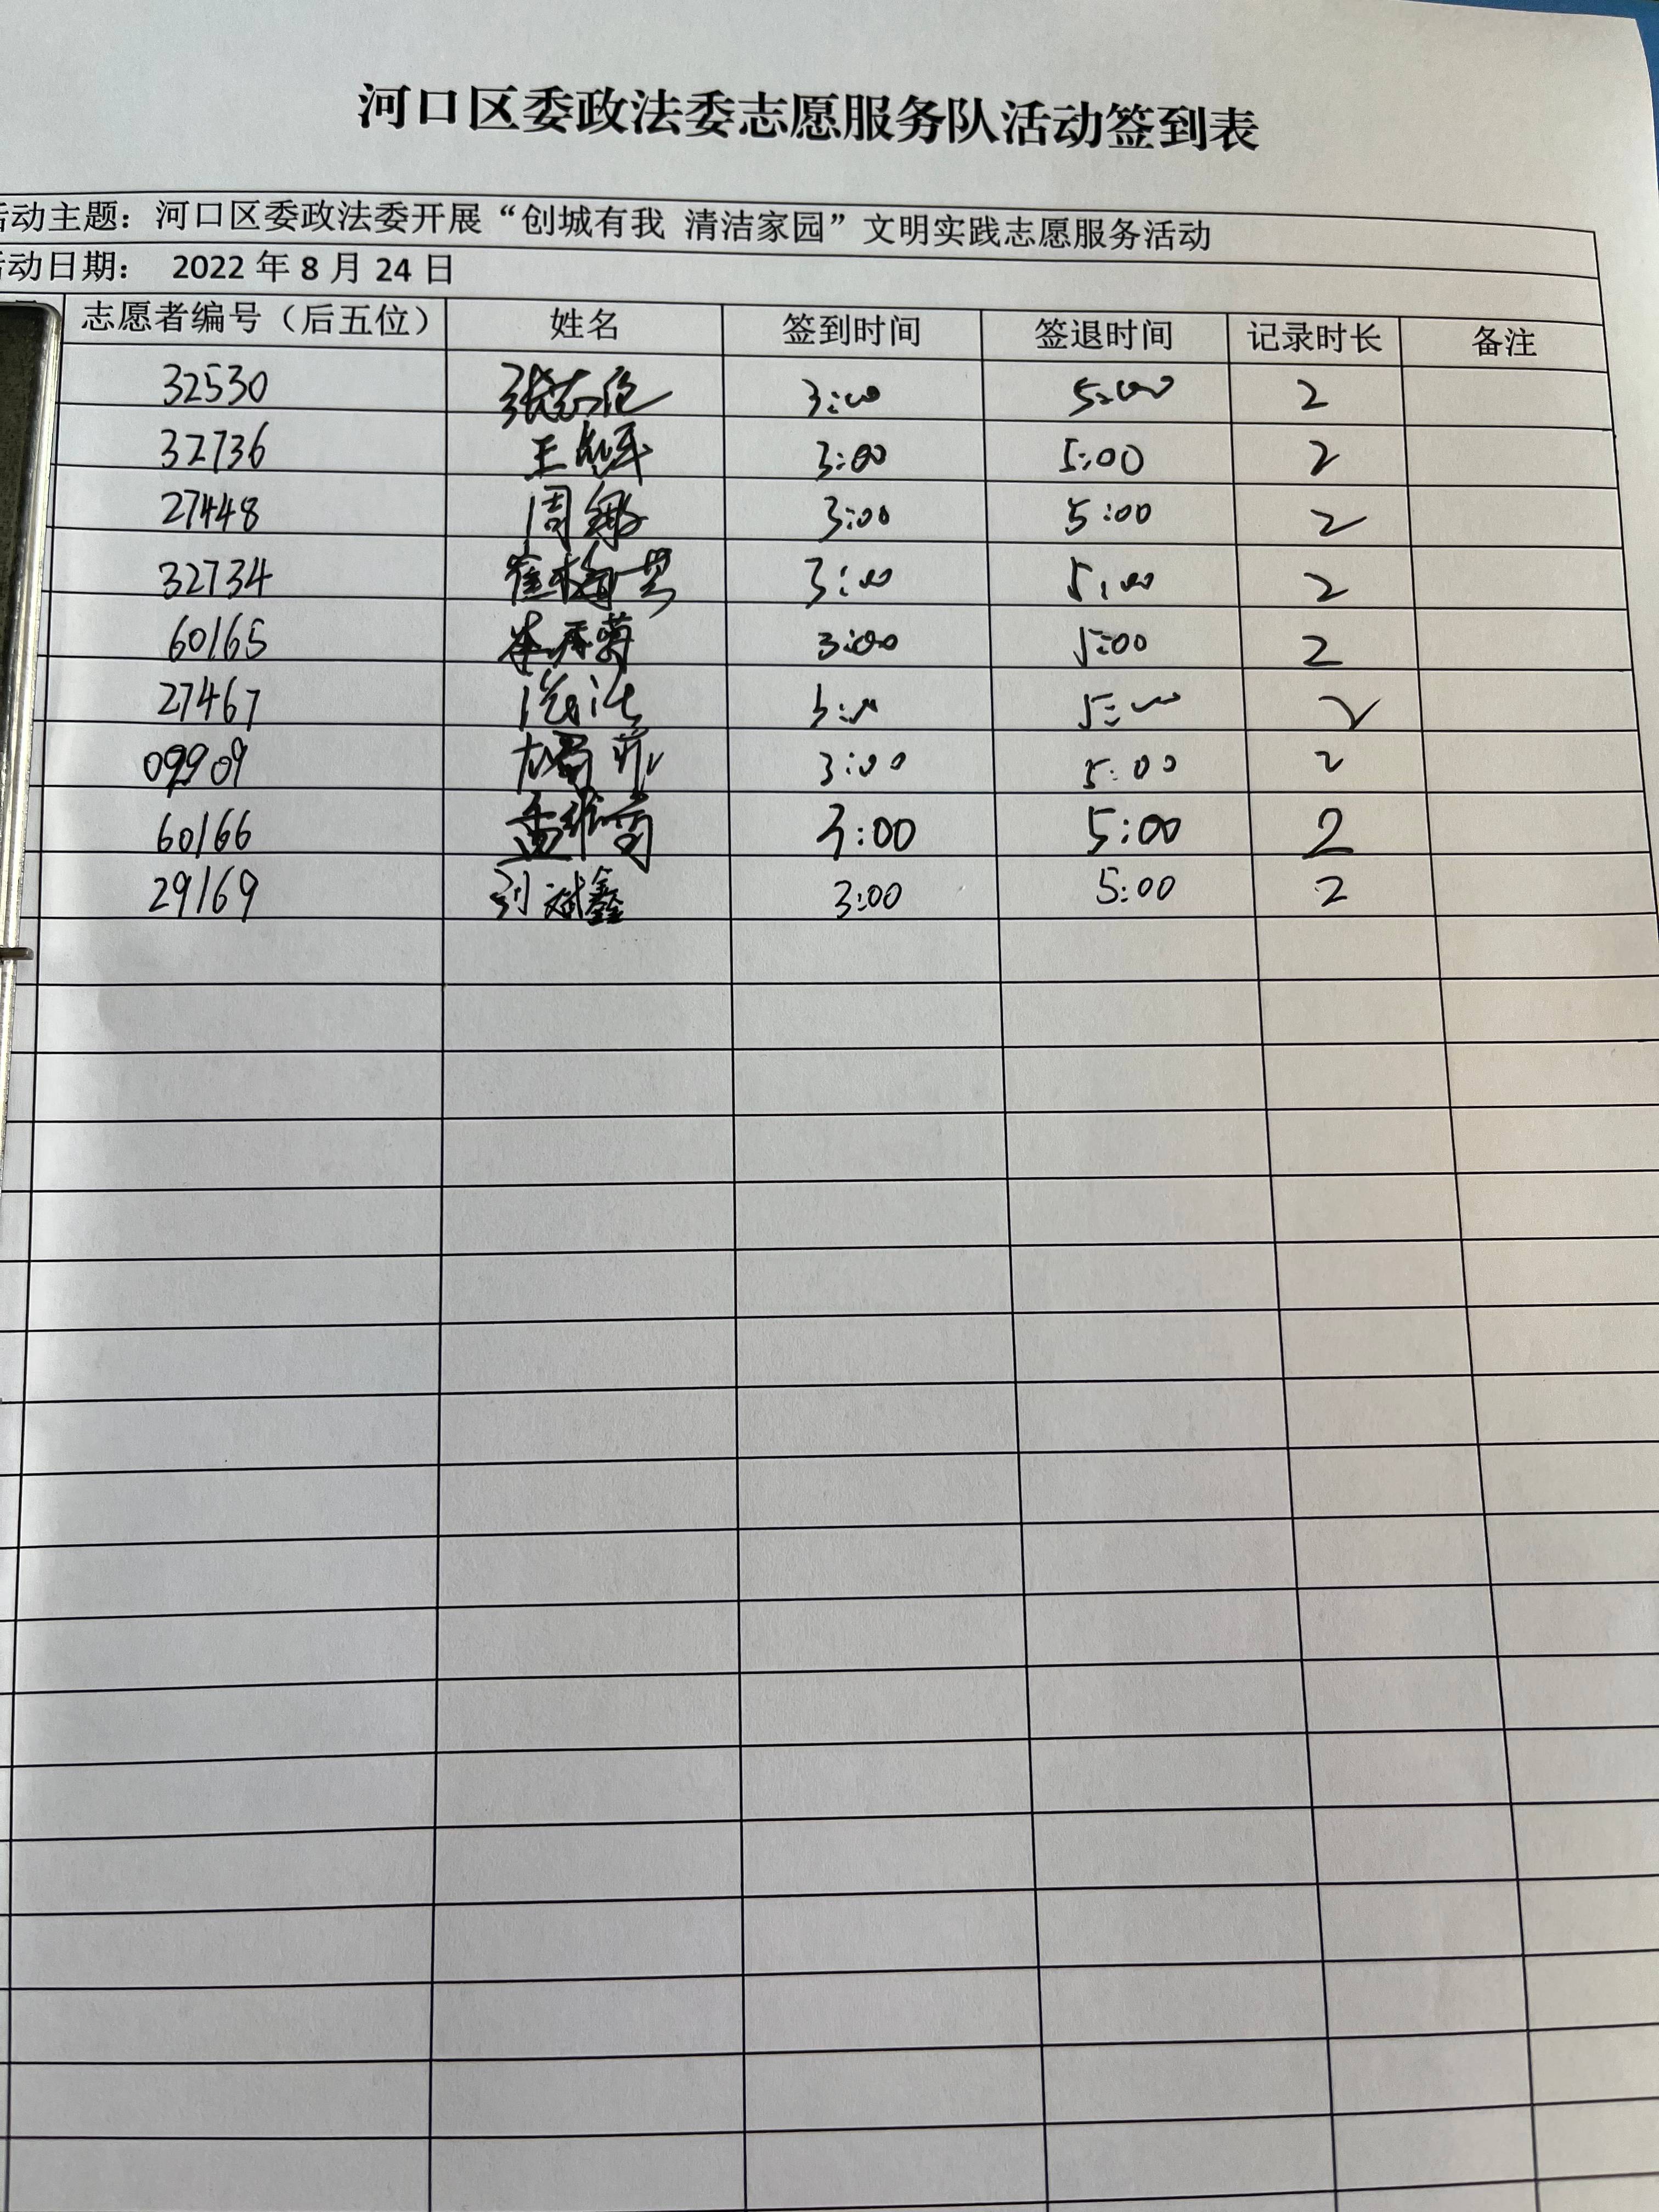 河口区委政法委志愿服务队活动签到表
活动主题：河口区委政法委开展“创城有我 清洁家园”文明实践志愿服务活动
活动日期： 2022 年 8 月 24 日
志愿者编号（后五位） 姓名 签到时间 签退时间 记录时长 备注
32530 3:00 5:00 2
32736 3:00 5:00 2
27448 周 3:00 5:00 2
32734 崔梅英 3:00 5:00 2
60165 3:00 5:00 2
27467 3:00 5:00 2
09909 3:00 5:00 2
60166 孟 3:00 5:00 2
29169 刘斌鑫 3:00 5:00 2